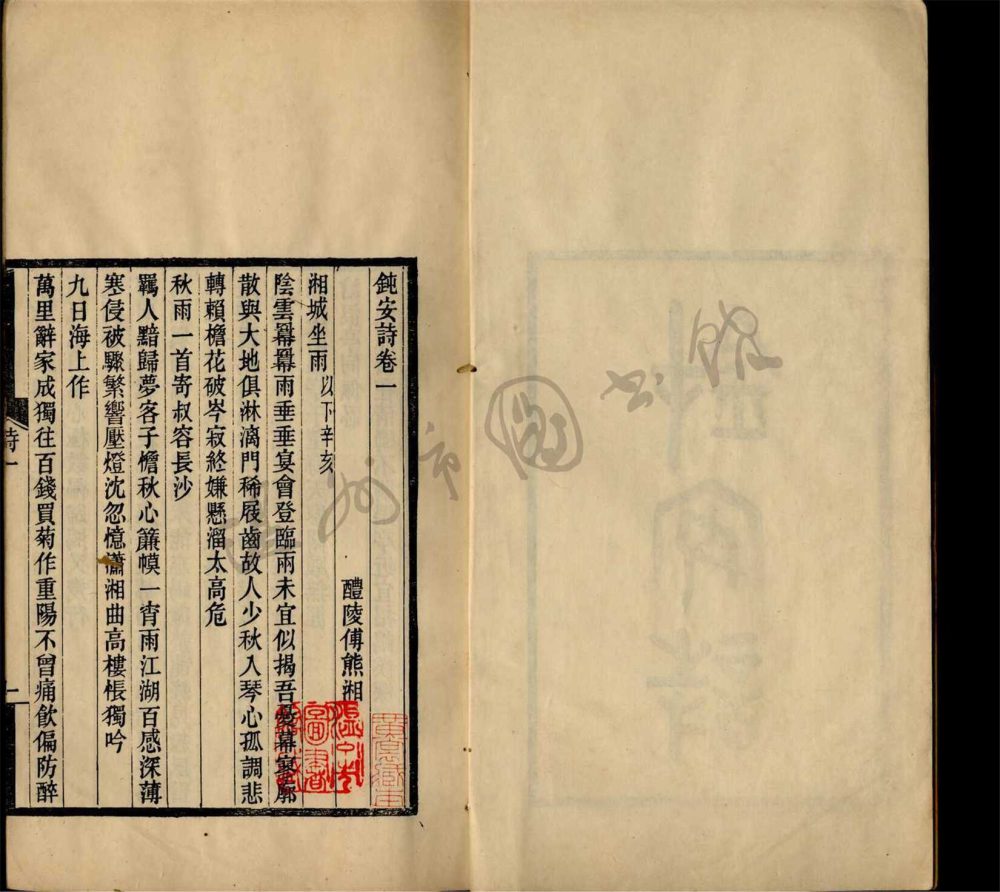 鈍安詩卷一
醴陵傅熊湘
湘城坐雨以下辛亥
陰雲羃羃雨垂垂宴會登臨兩未宜似揭吾憂幕寥廓
散與大地俱淋漓門稀屐齒故人少秋入琴心孤調悲
轉賴檐花破岑寂終嫌懸溜太高危
秋雨一首寄叔容長沙
羈人黯歸夢客子憺秋心簾幙一宵雨江湖百感深薄
寒侵被驟繁響壓燈沈忽憶瀟湘曲高樓悵獨吟
九日海上作
萬里辭家成獨往百錢買菊作重陽不曾痛飲偏防醉
詩一
一
州市圖書館